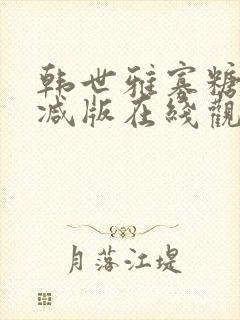 韩世雅塞糖
减版在线觀
月落江堤